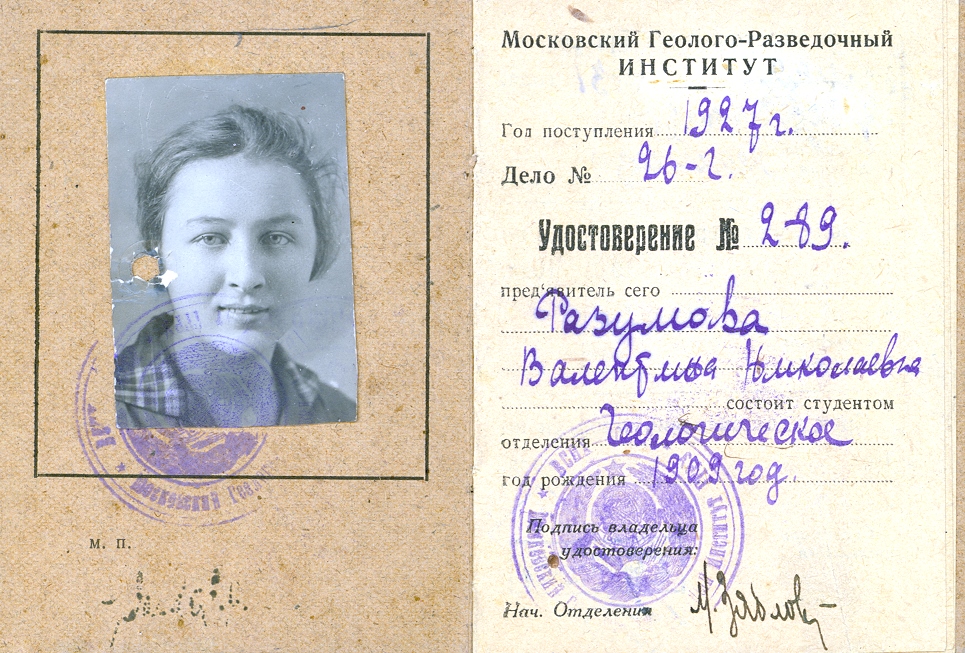 Московский Геолого-Разведочный
ИНСТИТУТ
Год поступления 1927 г.
Дело № 26-г.
Удостоверение № 289.
пред'явитель сего
Разумова
Валентина Николаевна
состоит студентом
отделения Геологическое
год рождения 1909 год.
Подпись владельца
удостоверения:
Нач. Отделения
м. п.